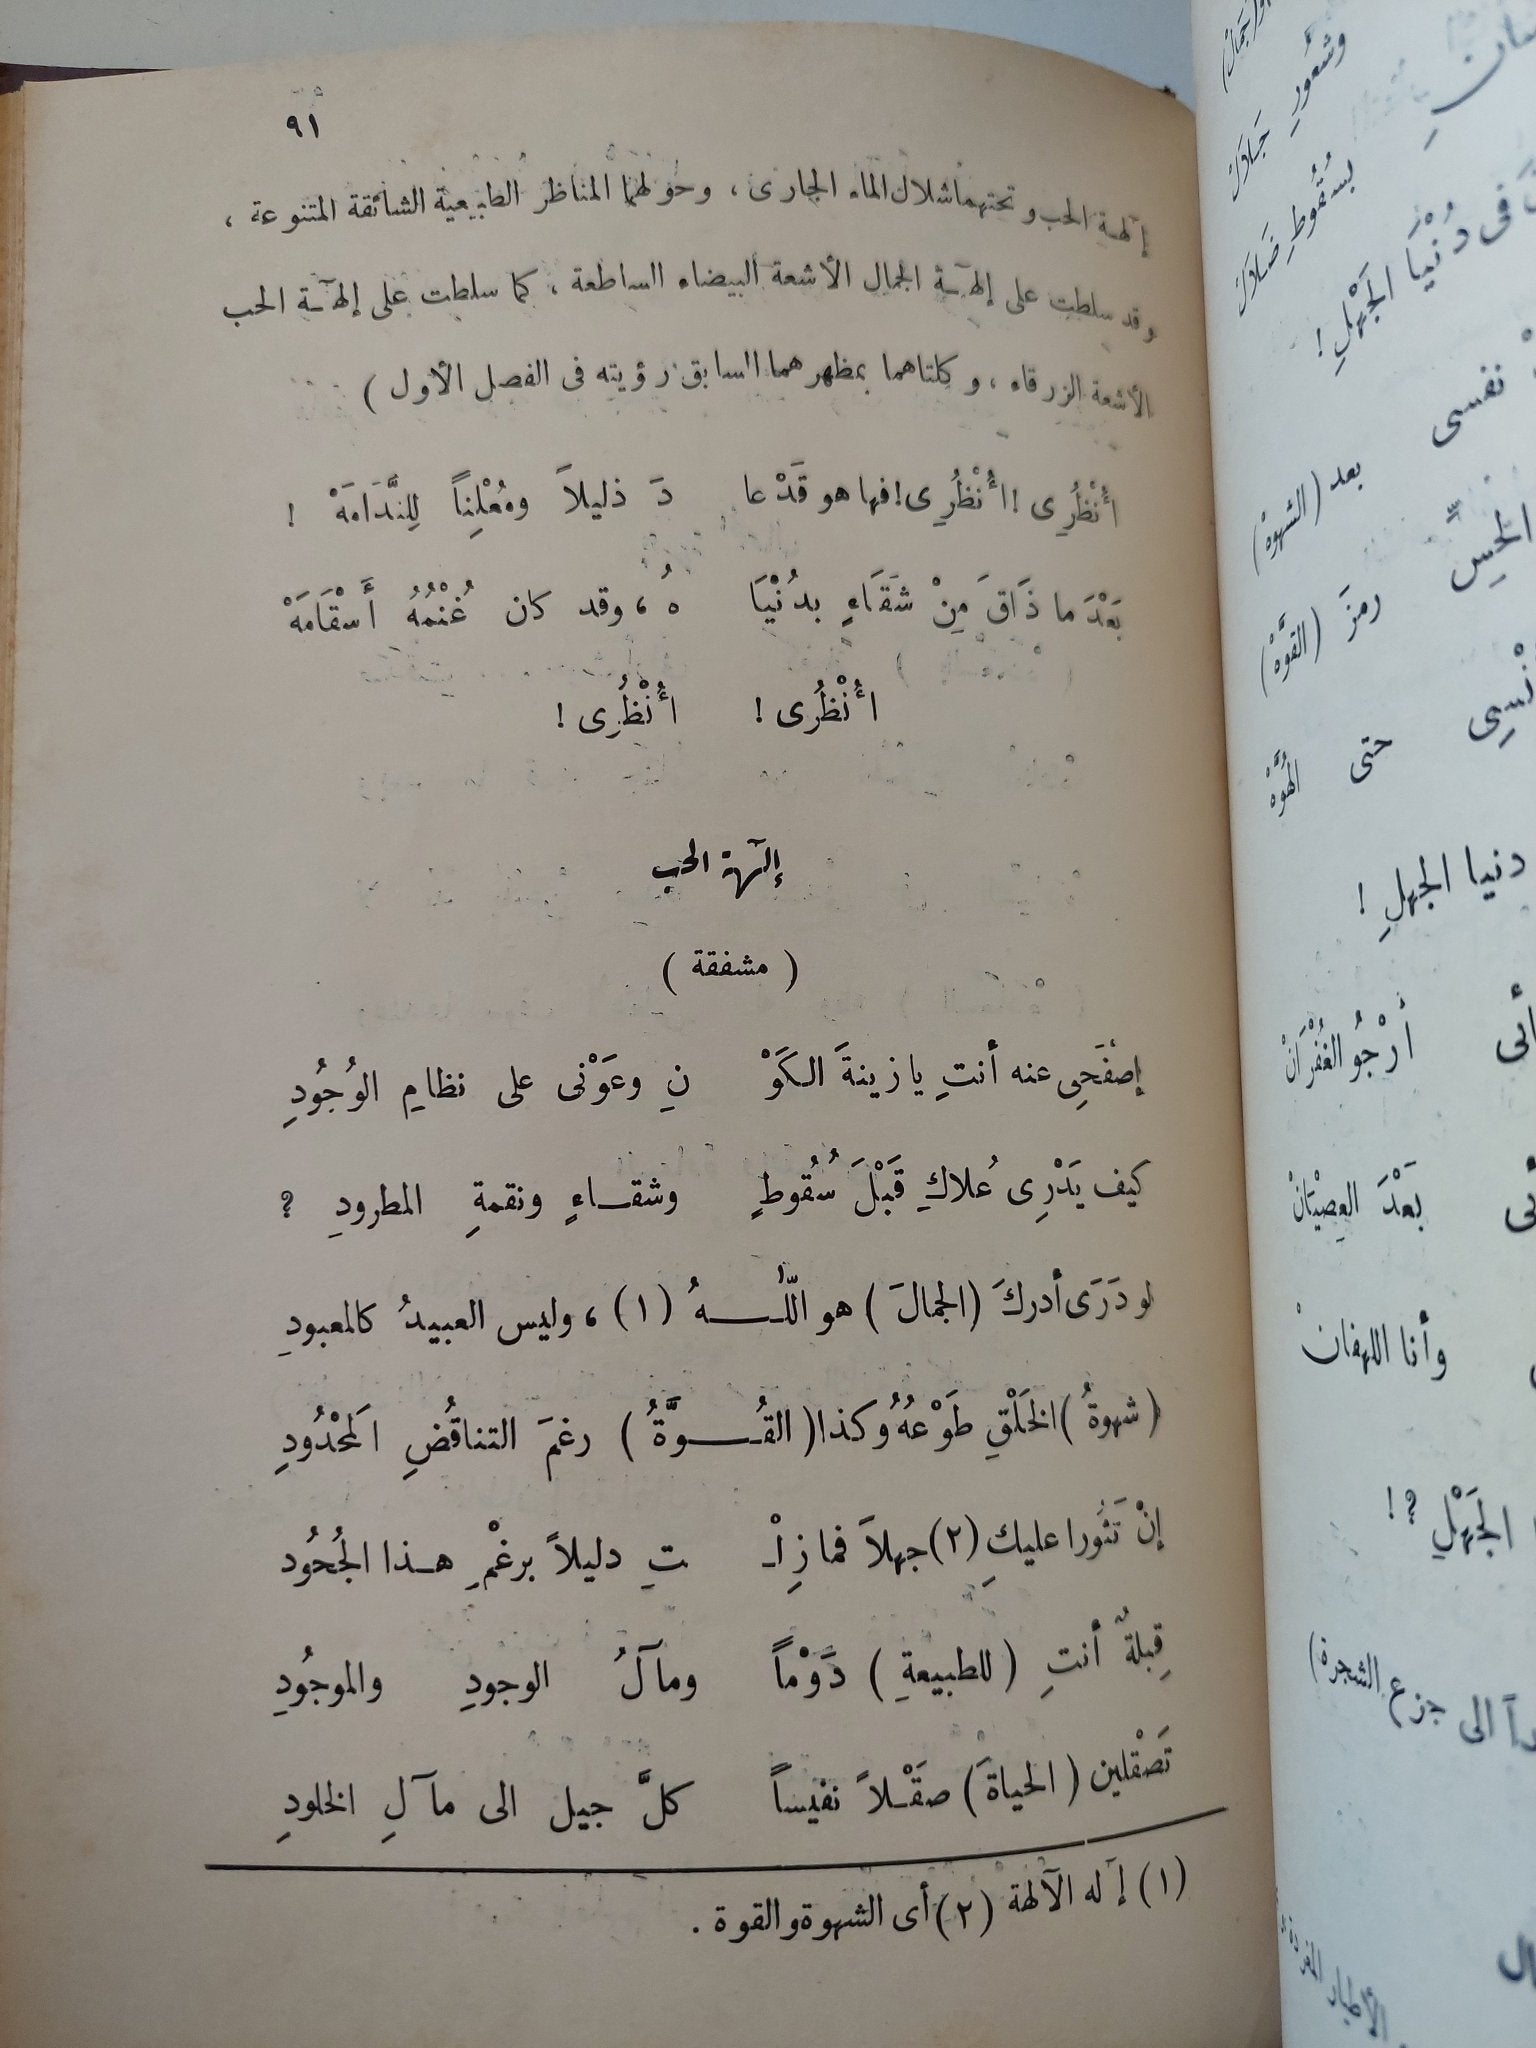 ٩١
إلهة الحب وتحتهما شلال الماء الجارى ، وحولهما المناظر الطبيعية الشائقة المتنوعة ،
وقد سلطت على إلهـة الجمال الأشعة البيضاء الساطعة ، كما سلطت على إلهـة الحب
الأشعة الزرقاء ، وكلتاهما بمظهرهما السابق رؤيته فى الفصل الأول )
اُنْظُرِى ! اُنْظُرِى ! فها هو قَدْ عا دَ ذليلاً ومُعْلِناً لِلنَّدَامَهْ !
بَعْدَ ما ذَاقَ مِنْ شَقَاءٍ بدُنْيَا هُ ، وقد كان غُنْمُهُ أَسْقَامَهْ
اُنْظُرِى ! اُنْظُرِى !
إلهة الحب
( مشفقة )
إصْفَحِى عنه أنتِ يا زينةَ الكَوْ نِ وعَوْنى على نظامِ الوُجُودِ
كيف يَدْرِى عُلاكِ قَبْلَ سُقُوطٍ وشقـاءٍ ونقمةِ المطرودِ ؟
لو دَرَى أدركَ ( الجمالَ ) هو اللّـهُ (١) ، وليس العبيدُ كالمعبودِ
( شهوةُ ) الخَلْقِ طَوْعُهُ وكذا ( القُـوَّةُ ) رغمَ التناقُضِ المَحْدُودِ
إنْ تَثُورا عليكِ (٢) جهلاً فما زِلْـ تِ دليلاً برغْمِ هـذا الجُحُود
قِبلةٌ أنتِ ( للطبيعةِ ) دَوْماً ومآلُ الوجودِ والموجُودِ
تَصْقلين ( الحياةَ ) صقَـْلاً نفيساً كلَّ جيل الى مآلِ الخلودِ
(١) إله الآلهة (٢) أى الشهوة والقوة .
وشعُورِ جَلالَكْ
بسُقُوطِ ضَلالَكْ
فى دُنْيَا الجَهْلِ !
نفسى بعد ( الشهوهْ )
الحِسِّ رمزَ ( القوَّهْ )
حتى الهُوَّهْ
دنيا الجهلِ !
أرْجُو الغُفْرَانْ
بَعْدَ العِصْيَانْ
وأنا اللهفانْ
الجَهْلِ ؟!
الى جزع الشجرة )